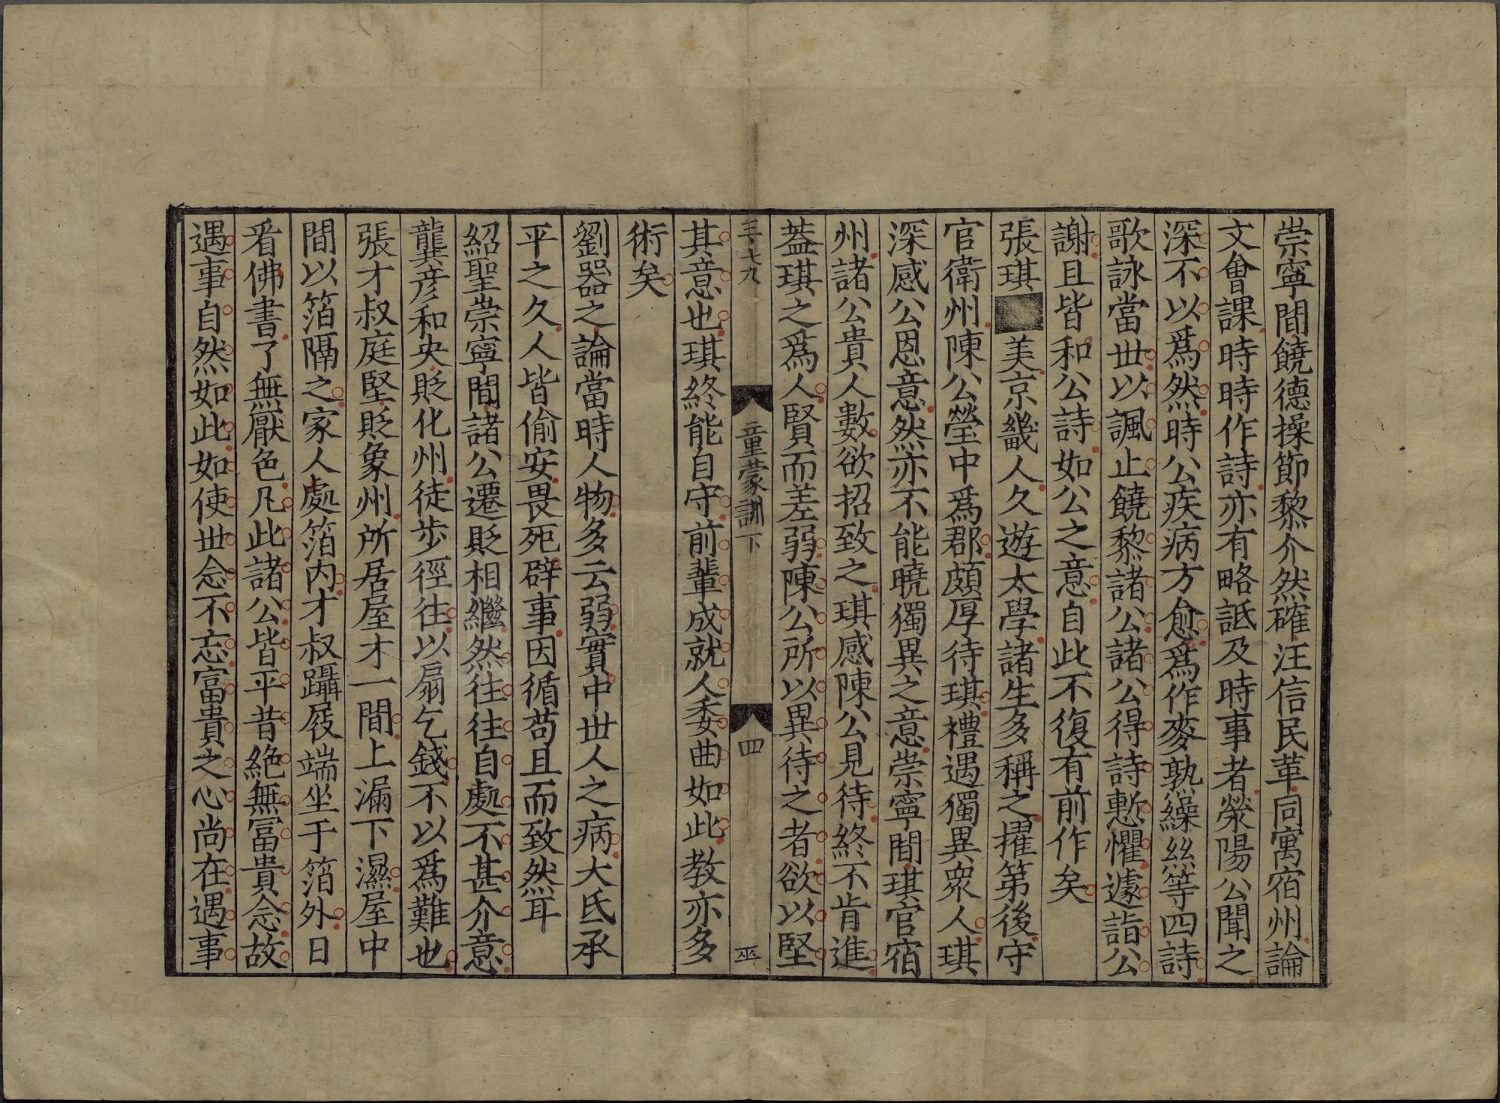 崇寧間饒德操節黎介然確汪信民革同寓宿州論
文會課時時作詩亦有略詆及時事者滎陽公聞之
深不以爲然時公疾病方愈爲作麥熟繰絲等四詩
歌詠當世以諷止饒黎諸公諸公得詩慙懼遽詣公
謝且皆和公詩如公之意自此不復有前作矣
張琪 美京畿人久遊太學諸生多稱之擢第後守
官衛州陳公瑩中爲郡頗厚待琪禮遇獨異衆人琪
深感公恩意然亦不能曉獨異之意崇寧間琪官宿
州諸公貴人數欲招致之琪感陳公見待終不肯進
葢琪之爲人賢而差弱陳公所以異待之者欲以堅
三七九 童蒙訓下 四 巫
其意也琪終能自守前輩成就人委曲如此教亦多
術矣
劉器之論當時人物多云弱實中世人之病大氐承
平之久人皆偷安畏死辟事因循苟且而致然耳
紹聖崇寧間諸公遷貶相繼然往往自處不甚介意
龔彥和夬貶化州徒步徑往以扇乞錢不以爲難也
張才叔庭堅貶象州所居屋才一間上漏下濕屋中
間以箔隔之家人處箔内才叔躡屐端坐于箔外日
看佛書了無厭色凡此諸公皆平昔絶無富貴念故
遇事自然如此如使世念不忘富貴之心尚在遇事